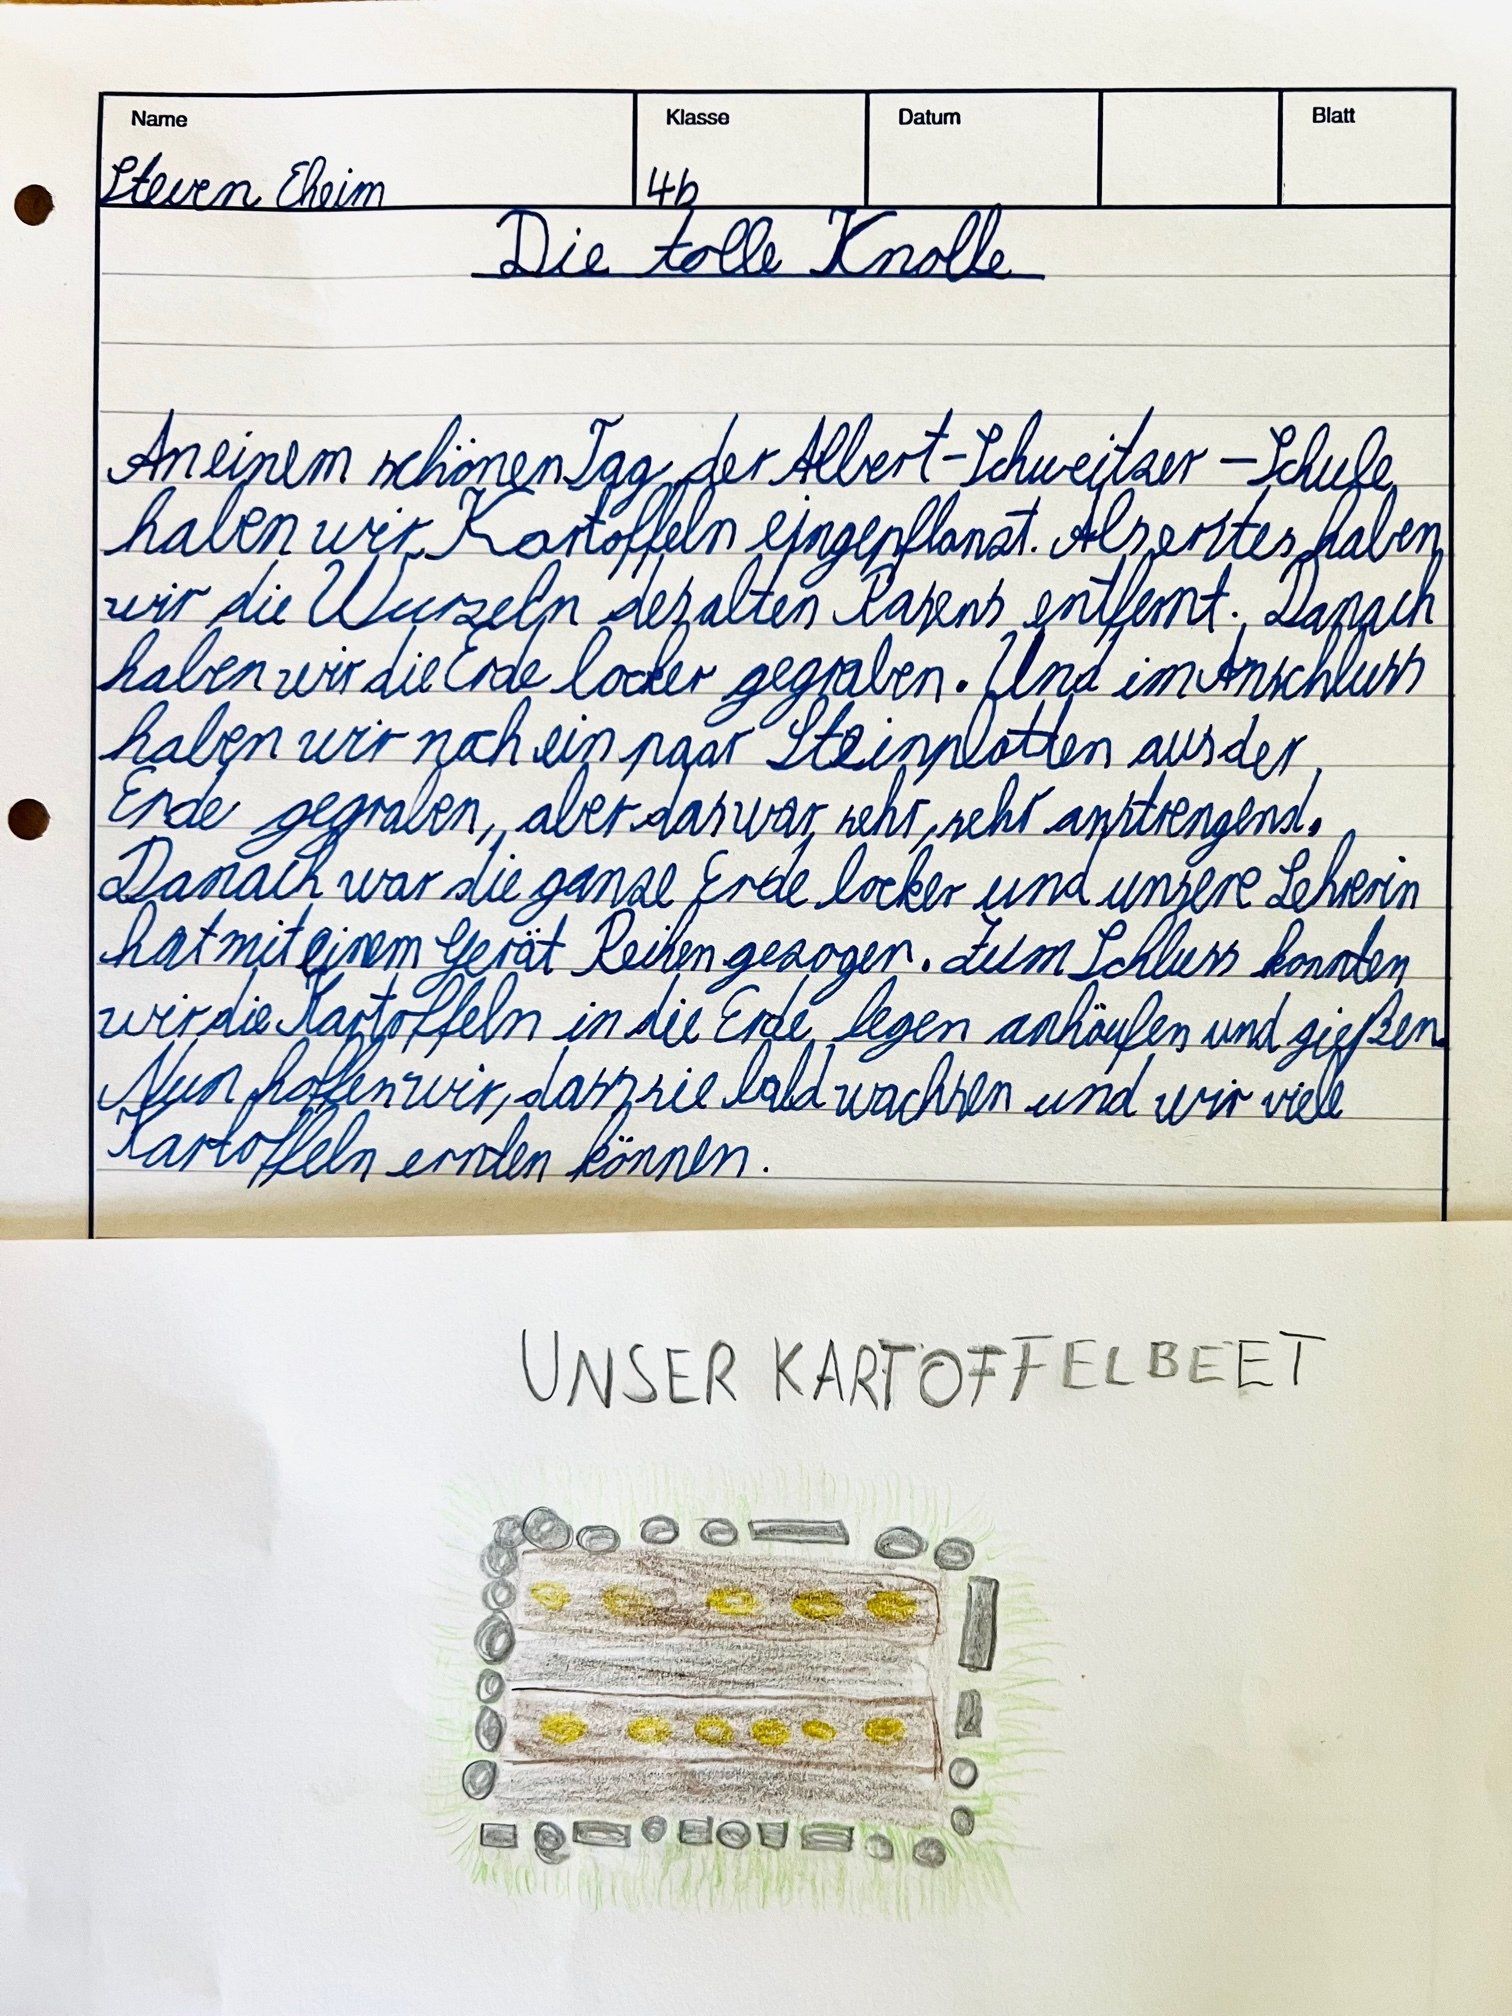 Name Klasse Datum Blatt
Steven Eheim 4b
Die tolle Knolle
An einem schönen Tag der Albert-Schweitzer-Schule
haben wir Kartoffeln eingepflanzt. Als erstes haben
wir die Wurzeln des alten Rasens entfernt. Danach
haben wir die Erde locker gegraben. Und im Anschluss
haben wir noch ein paar Steinplatten aus der
Erde gegraben, aber das war sehr, sehr anstrengend.
Danach war die ganze Erde locker und unsere Lehrerin
hat mit einem Gerät Reihen gezogen. Zum Schluss konnten
wir die Kartoffeln in die Erde legen anhäufen und gießen.
Nun hoffen wir, dass sie bald wachsen und wir viele
Kartoffeln ernten können.
UNSER KARTOFFELBEET